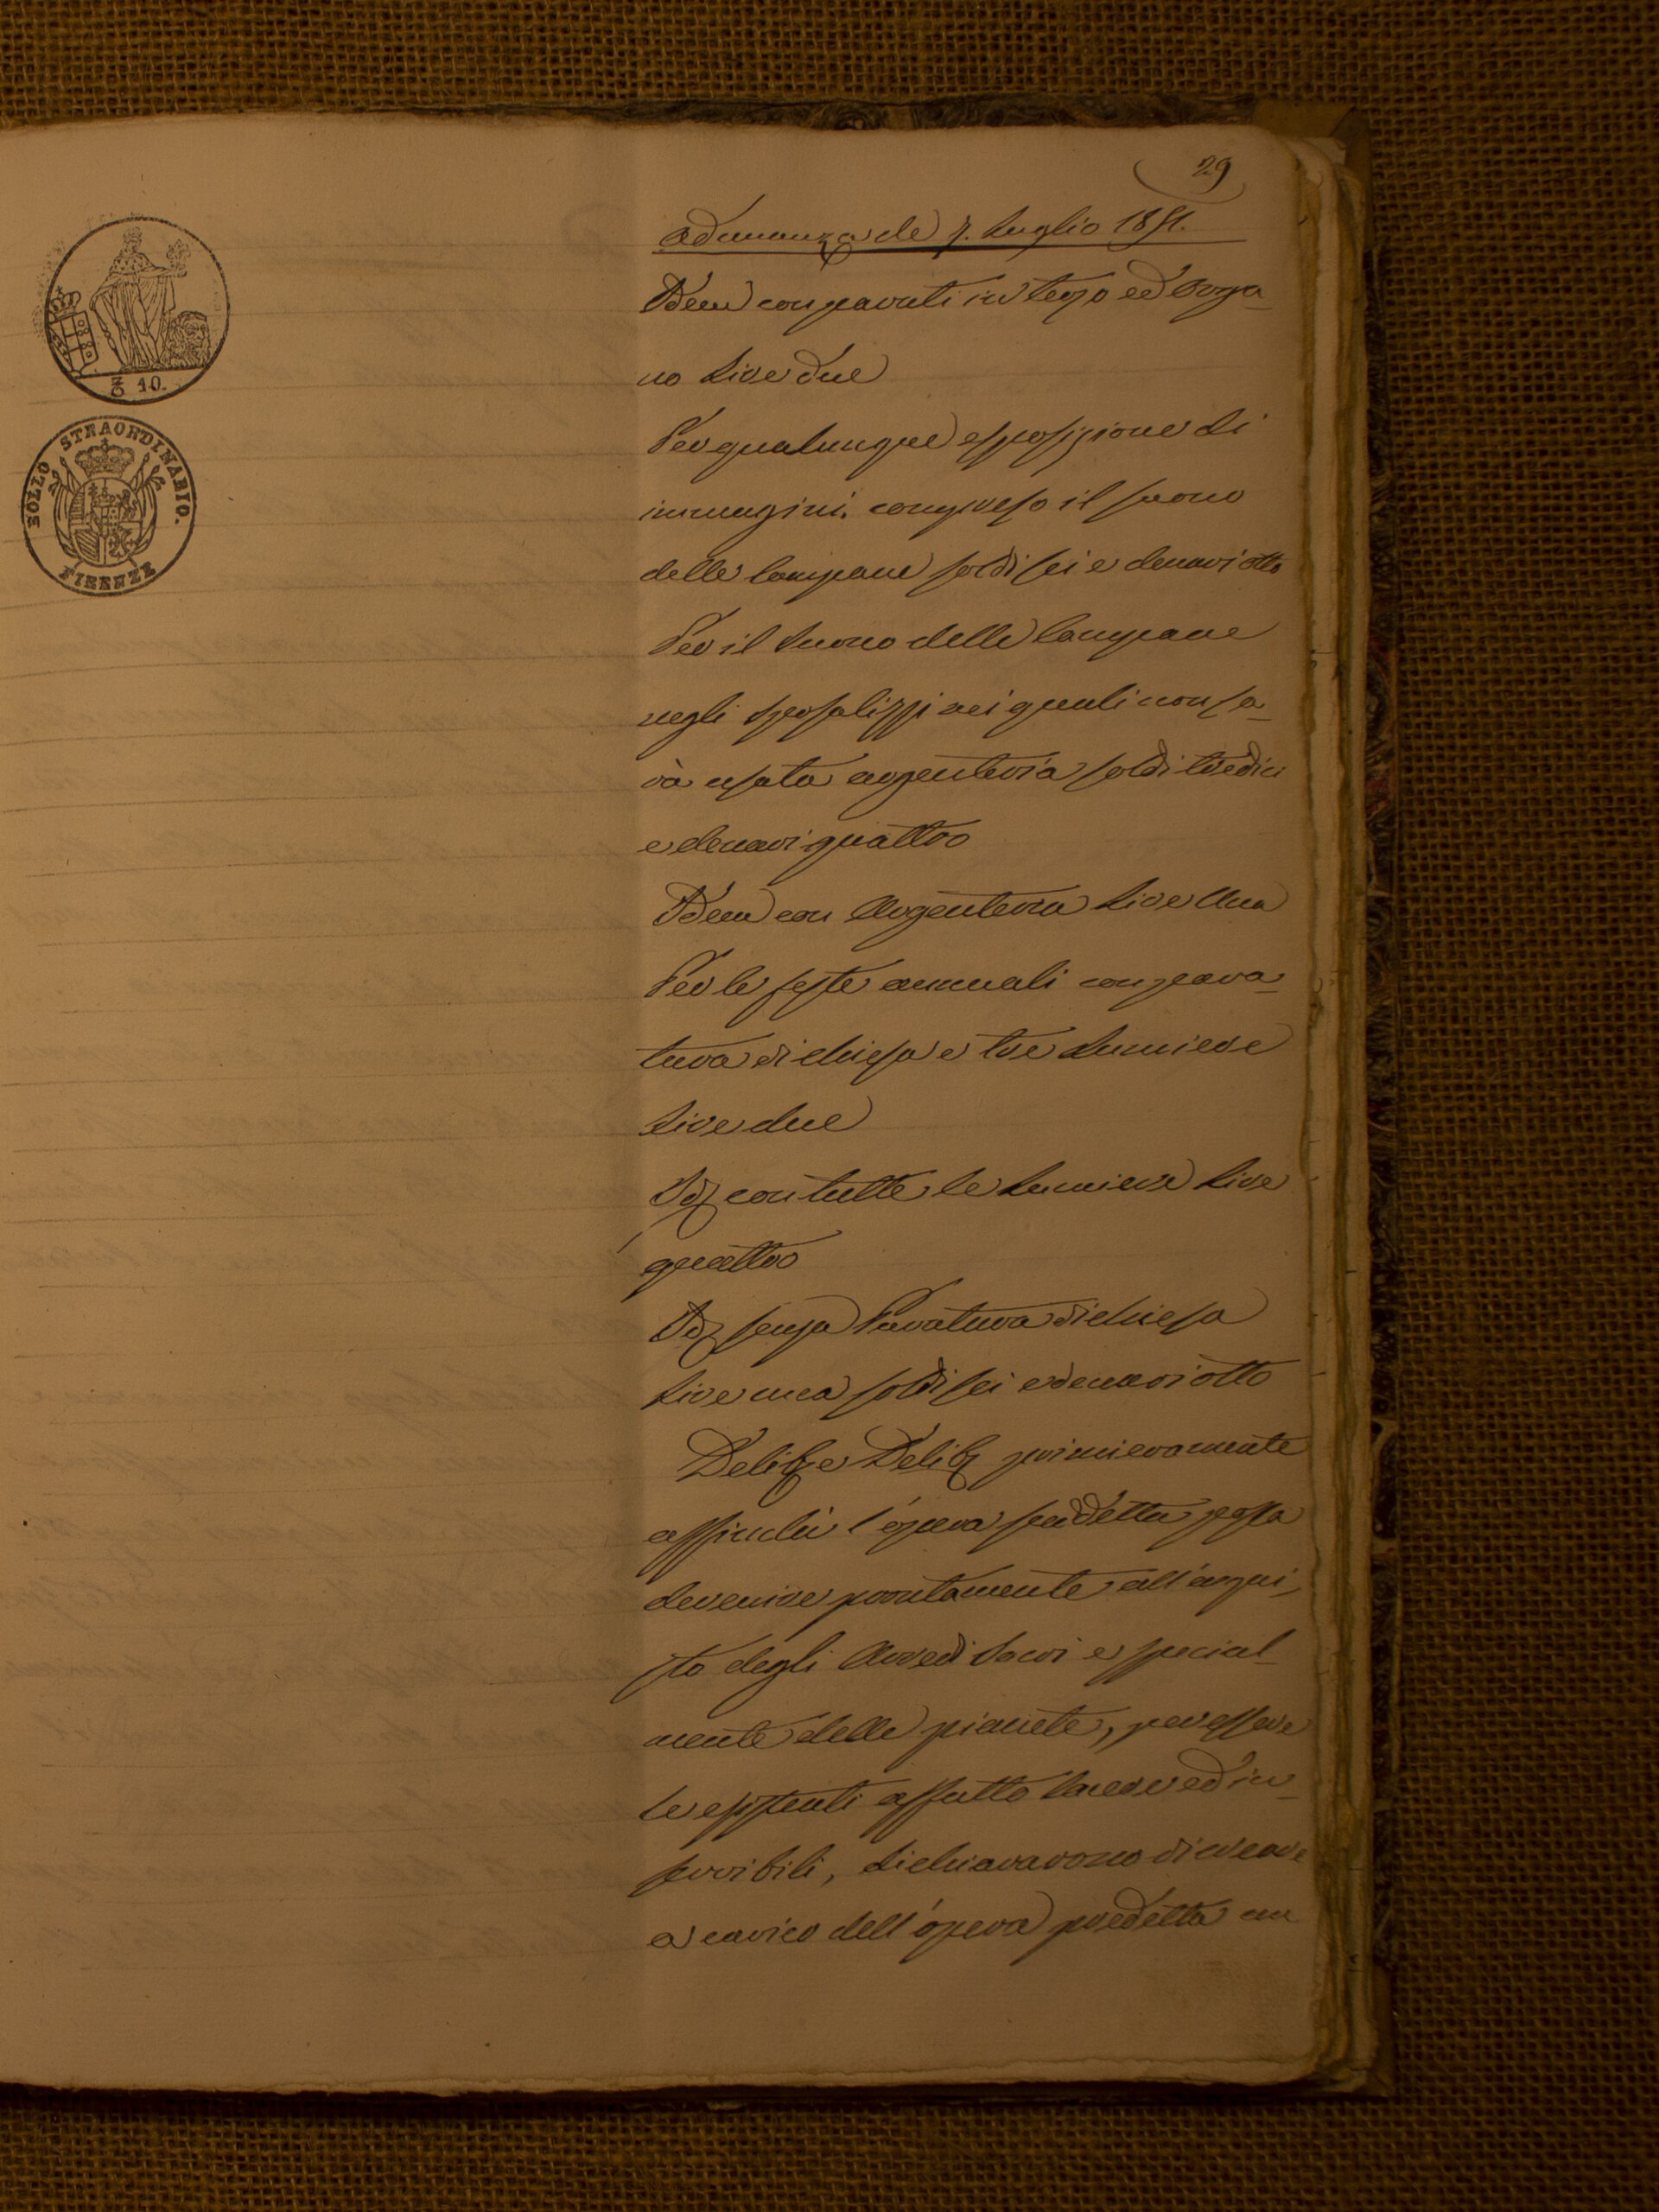 29
Adunanza del 7. Luglio 1851.
Idem con parati in terzo ed Orga-
no Lire due
Per qualunque esposizione di
immagini compreso il suono
delle Campane soldi sei e denari otto
Per il Suono delle Campane
negli sposalizzi nei quali non sa-
rà usata argenteria soldi tredici
e denari quattro
Idem con Argenteria Lire Una
Per le feste annuali con para-
tura di chiesa e tre Lumiere
Lire due
Id. con tutte le Lumiere Lire
quattro
Id. senza Paratura di chiesa
Lire una soldi sei e denari otto
Delib. e Delib. primieramente
affinchè l'opera suddetta possa
devenire prontamente all'acqui-
sto degli Arredi Sacri e special-
mente delle pianete, per essere
le esistenti affatto lacere ed in-
servibili, dichiararono di creare
a carico dell'opera predetta un
£ 10.
BOLLO STRAORDINARIO.
FIRENZE